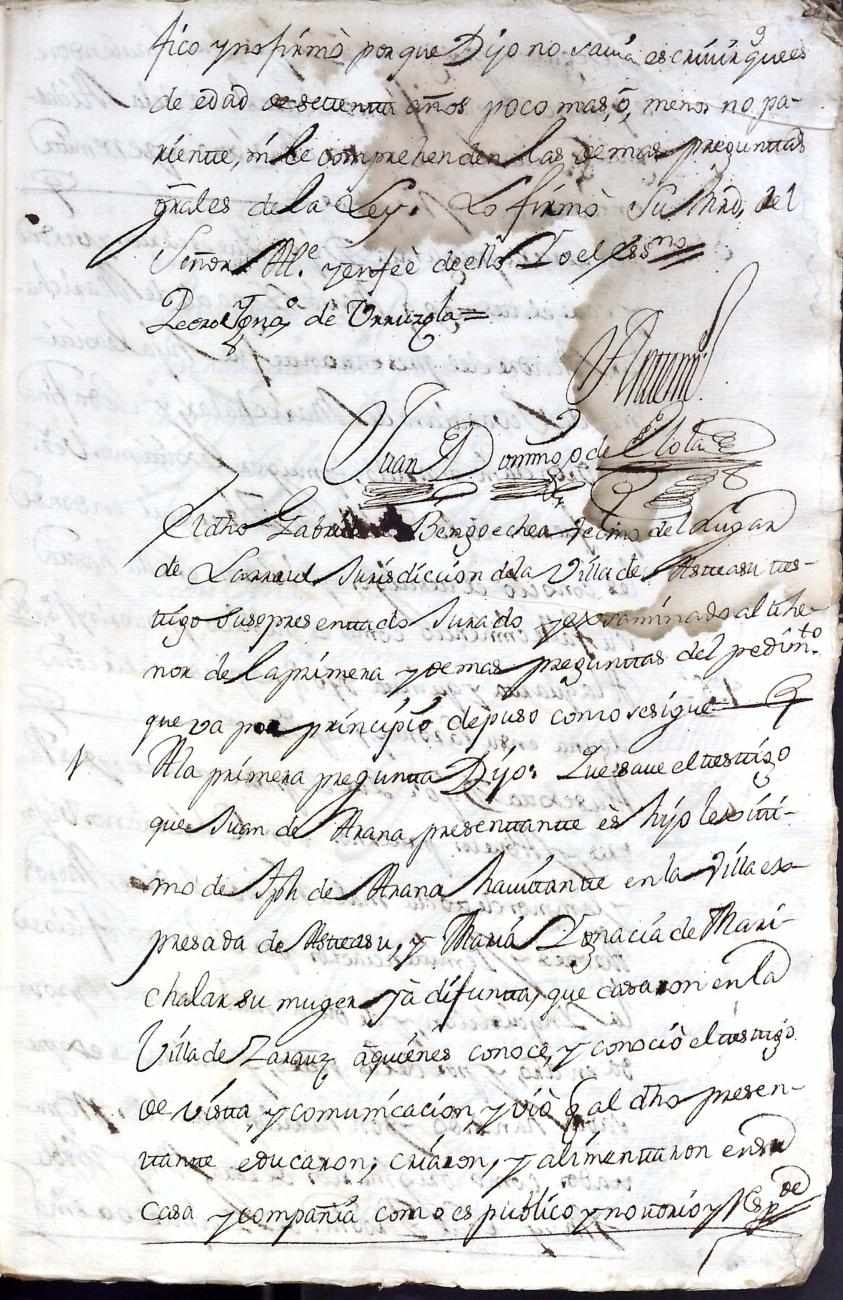 fico y no firmò porque Dijo no savia escrivir q̃ es
de edad de settentta años poco mas, ò, menos no pa-
riente, ni le comprehenden las demas preguntas
gr̃ales de la Ley. Lo firmò Su Mrd, del
Señor Alle. y en feè de ello Yo el Essno.
Pedro Ygna.o de Urruzola=
Antemi
Juan Domingo de
El dho Gabriel de Bengoechea Vecino del Lugar
de Larraul Jurisdicion dela Villa de Asteasu tes-
tigo suso presenttado Jurado y examinado al the-
nor de la primera y demas preguntas del pedimto.
que va por principio depuso como se sigue
1. Ala primera pregunta Dijo: Que save el testtigo
que Juan de Arana presenttantte es hijo lexiti-
mo de Jph de Arana havittantte en la Villa ex-
presada de Asteasu, y Maria Ygnacia de Mari-
chalar su muger yà difunta, que casaron en la
Villa de Zarauz, àquienes conoce, y conociò el testtigo
de vistta, y comunicacion, y viò q̃ al dho presen-
ttantte educaron, criaron, y alimenttaron en su
casa y compañia como es publico y nottorio y Resp.de